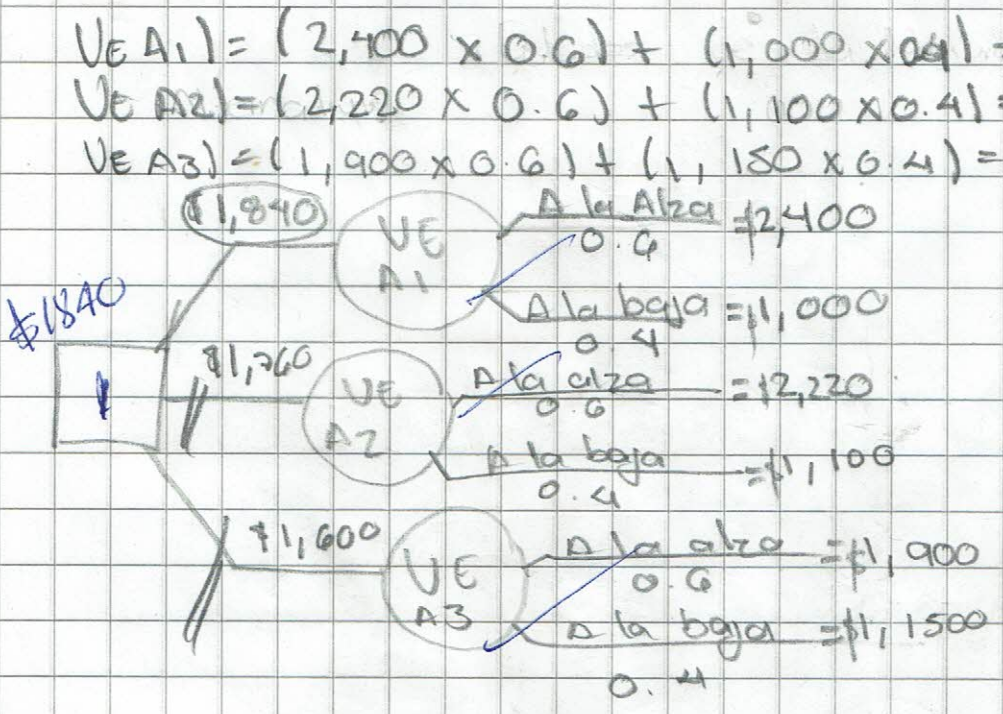 VE A1) = (2,400 x 0.6) + (1,000 x 0.4)
VE A2) = (2,220 x 0.6) + (1,100 x 0.4) =
VE A3) = (1,900 x 0.6) + (1,150 x 0.4) =
$1,840 VE A1 A la Alza 0.6 $2,400
A la baja 0.4 = $1,000
$1840
1
$1,760 VE A2 A la alza 0.6 = $2,220
A la baja 0.4 = $1,100
$1,600 VE A3 A la alza 0.6 = $1,900
A la baja 0.4 = $1,1500